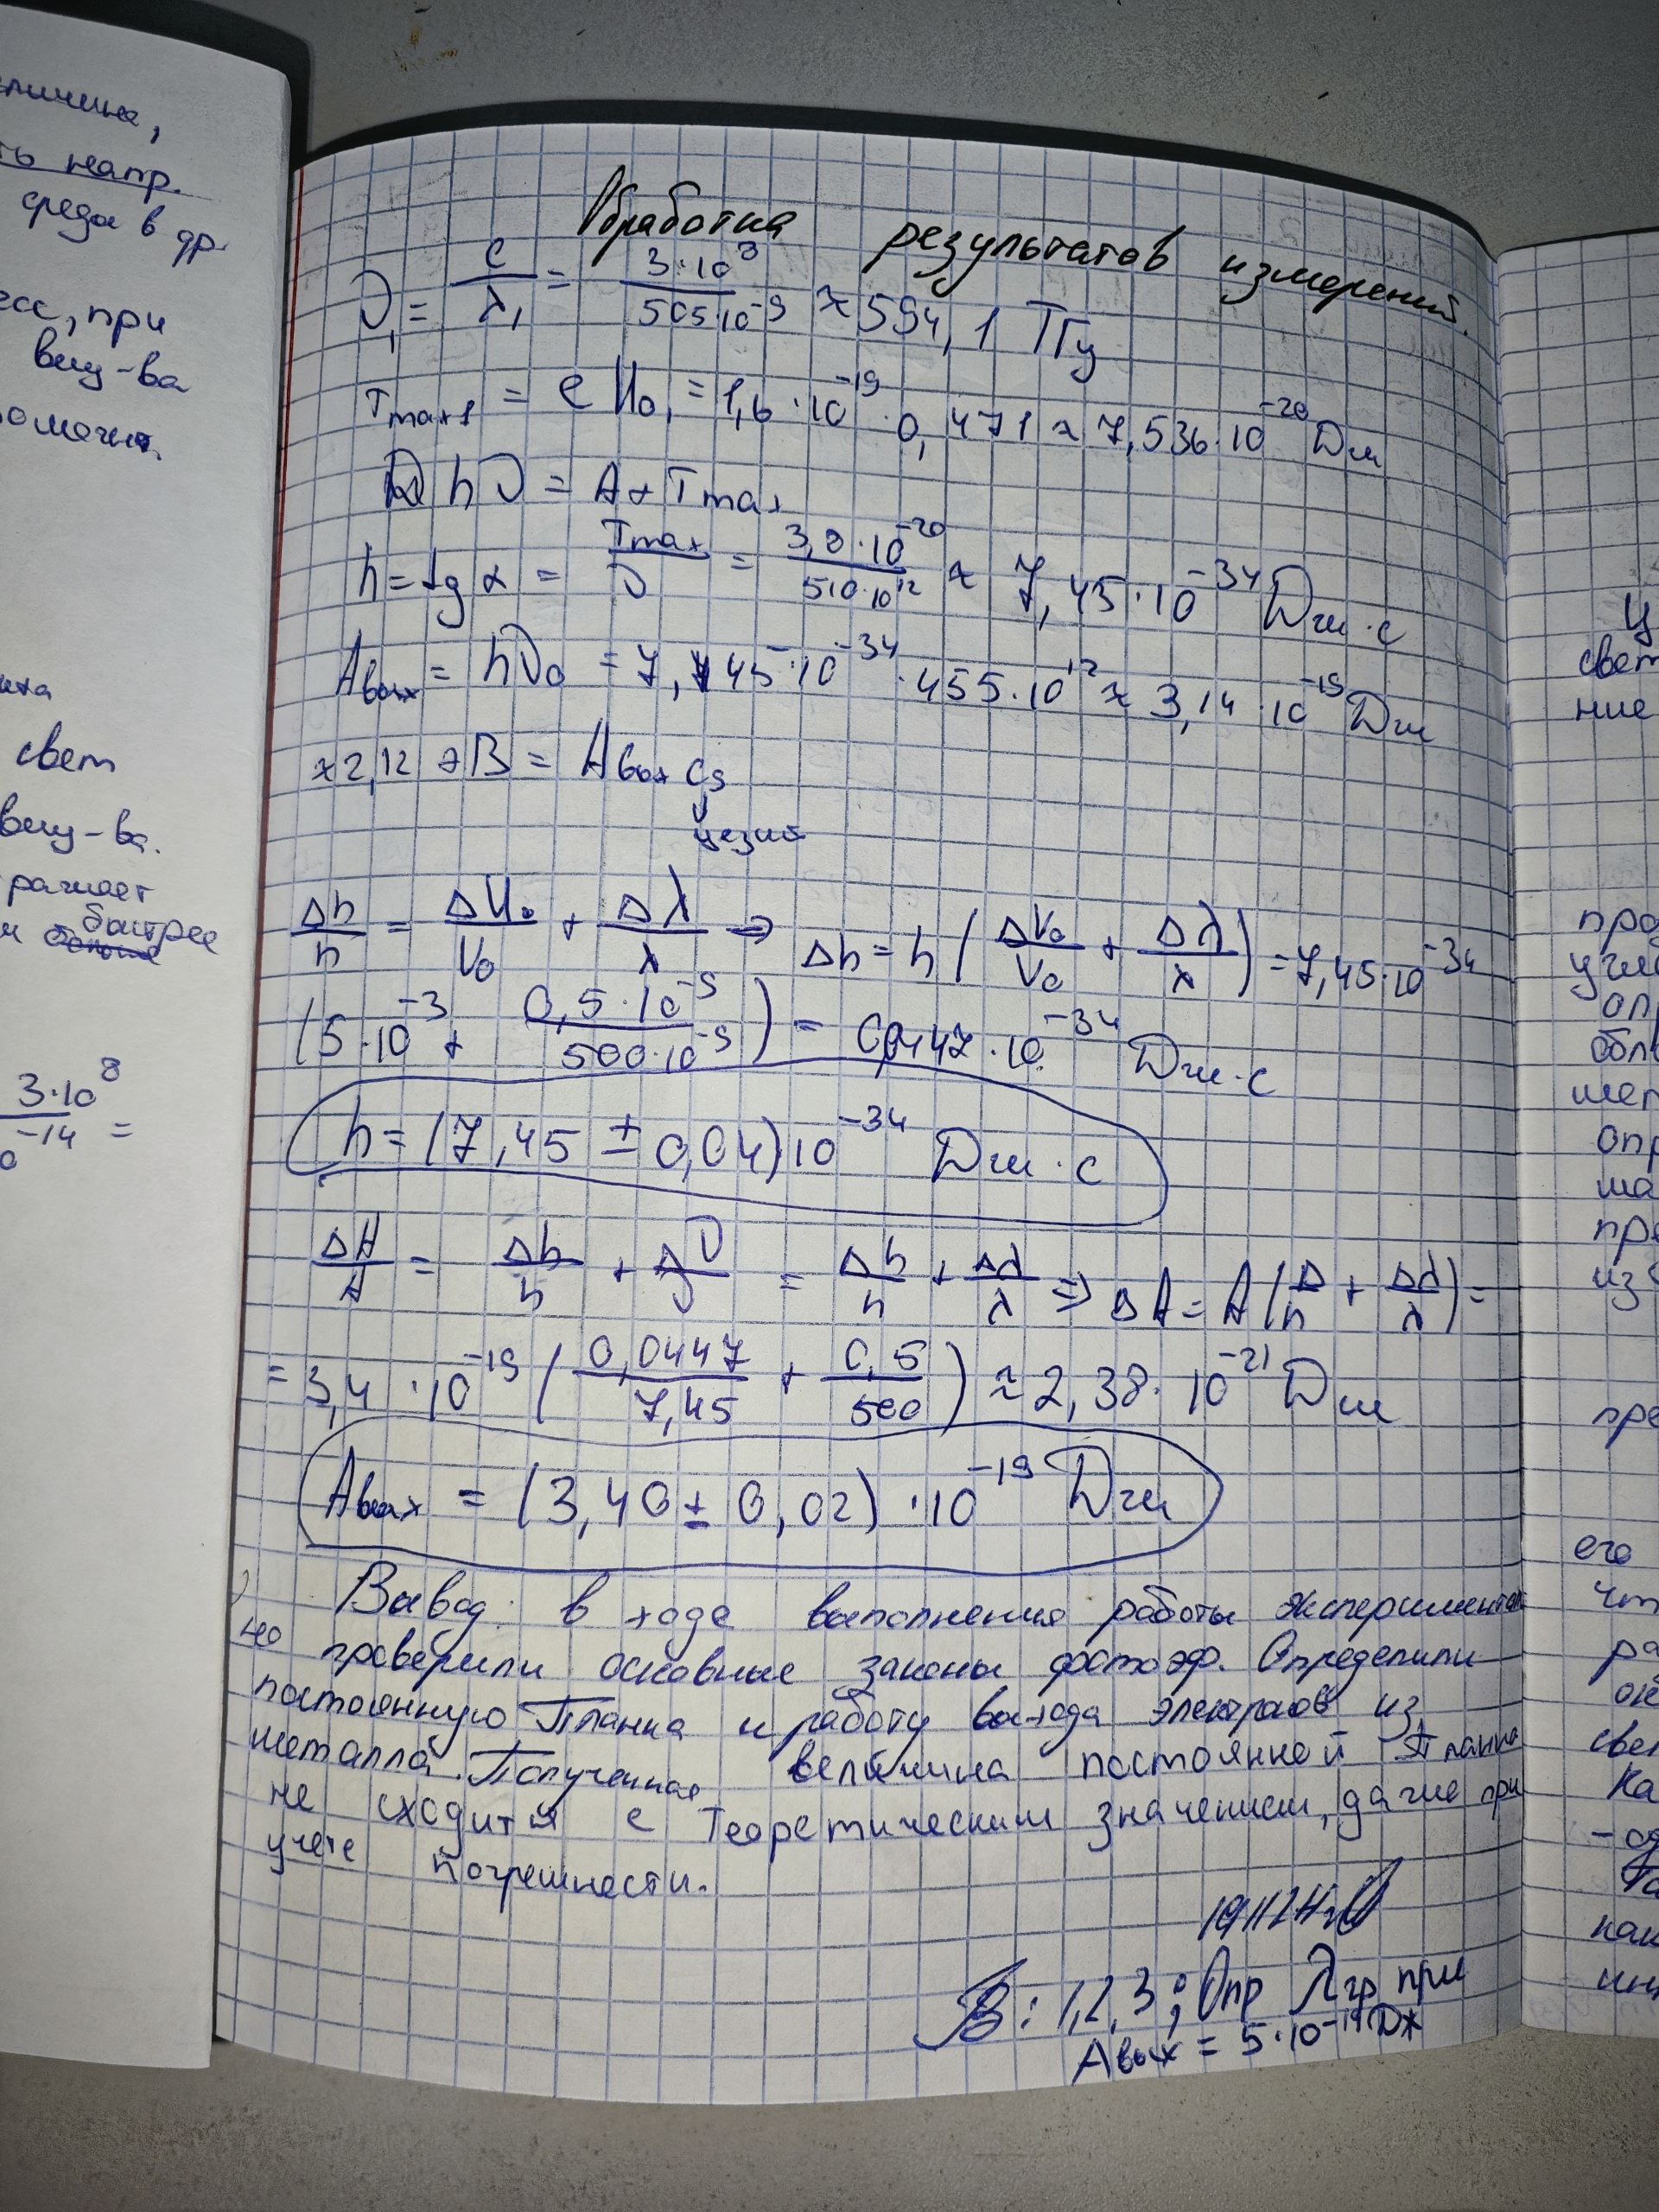 зличине,
ть напр.
среда в др.
сс, при
вещ-ва
свет
вещ-ва.
быстрее
3·10⁸
-14 =
Обработка результатов измерений.
ν₁ = c/λ₁ = 3·10⁸/505·10⁻⁹ ≈ 594,1 ТГц
Tmax1 = eU₀₁ = 1,6·10⁻¹⁹·0,471 ≈ 7,536·10⁻²⁰ Дж
hν = A + Tmax
h = tg α = Tmax/ν = 3,8·10⁻²⁰/510·10¹² ≈ 7,45·10⁻³⁴ Дж·с
Aвых = hν₀ = 7,45·10⁻³⁴·455·10¹² ≈ 3,14·10⁻¹⁹ Дж
≈ 2,12 эВ = Aвых Cs
цезий
Δh/h = ΔU₀/V₀ + Δλ/λ ⇒ Δh = h(ΔV₀/V₀ + Δλ/λ) = 7,45·10⁻³⁴
(5·10⁻³ + 0,5·10⁻⁹/500·10⁻⁹) = 0,0447·10⁻³⁴ Дж·с
h = (7,45 ± 0,04)10⁻³⁴ Дж·с
ΔA/A = Δh/h + Δν/ν = Δh/h + Δλ/λ ⇒ ΔA = A(Δ/h + Δλ/λ) =
= 3,4·10⁻¹⁹(0,0447/7,45 + 0,5/500) ≈ 2,38·10⁻²¹ Дж
Aвых = (3,40 ± 0,02)·10⁻¹⁹ Дж
Вывод: в ходе выполнения работы эксперименталь
но проверили основные законы фотоэф. Определили
постоянную Планка и работу выхода электронов из
металла. Полученная величина постоянной Планка
не сходится с теоретическим значением, даже при
учете погрешности.
В: 1,2,3; Опр λгр при
Aвых = 5·10⁻¹⁹ Дж
Ц
свет
ние
про
опр
пре
из
пре
его